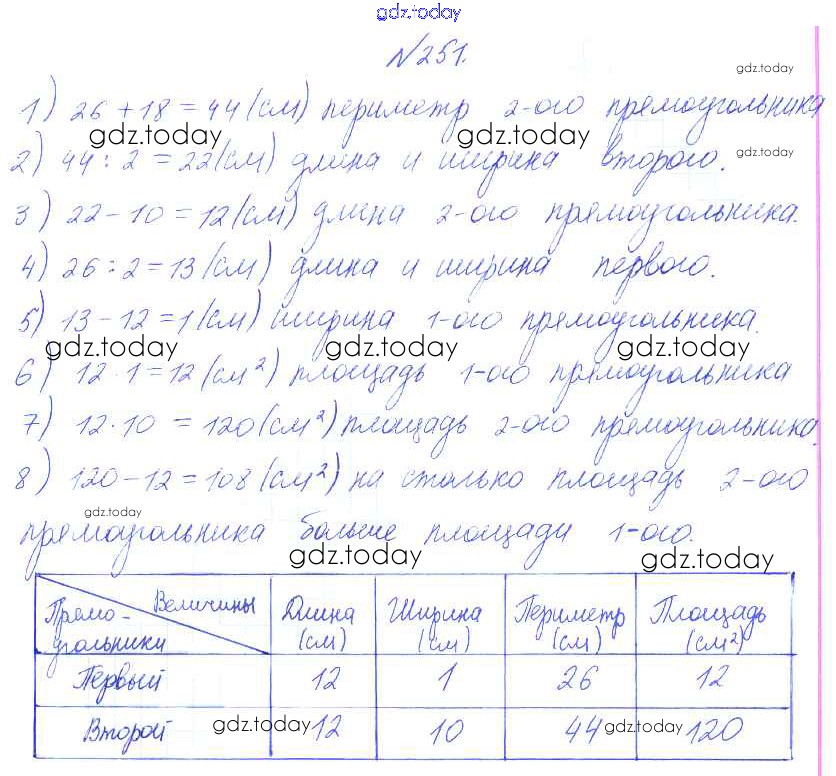 gdz.today
№251.
gdz.today
1) 26 + 18 = 44 (см) периметр 2-ого прямоугольника
gdz.today gdz.today gdz.today
2) 44 : 2 = 22 (см) длина и ширина второго.
gdz.today
3) 22 - 10 = 12 (см) длина 2-ого прямоугольника.
4) 26 : 2 = 13 (см) длина и ширина первого.
5) 13 - 12 = 1 (см) ширина 1-ого прямоугольника.
gdz.today gdz.today gdz.today
6) 12 · 1 = 12 (см²) площадь 1-ого прямоугольника
7) 12 · 10 = 120 (см²) площадь 2-ого прямоугольника.
8) 120 - 12 = 108 (см²) на столько площадь 2-ого
gdz.today
прямоугольника больше площади 1-ого.
gdz.today gdz.today
Величины Длина Ширина Периметр Площадь
Прямо- (см) (см) (см) (см²)
угольники
Первый 12 1 26 12
Второй 12 10 44 120
gdz.today gdz.today